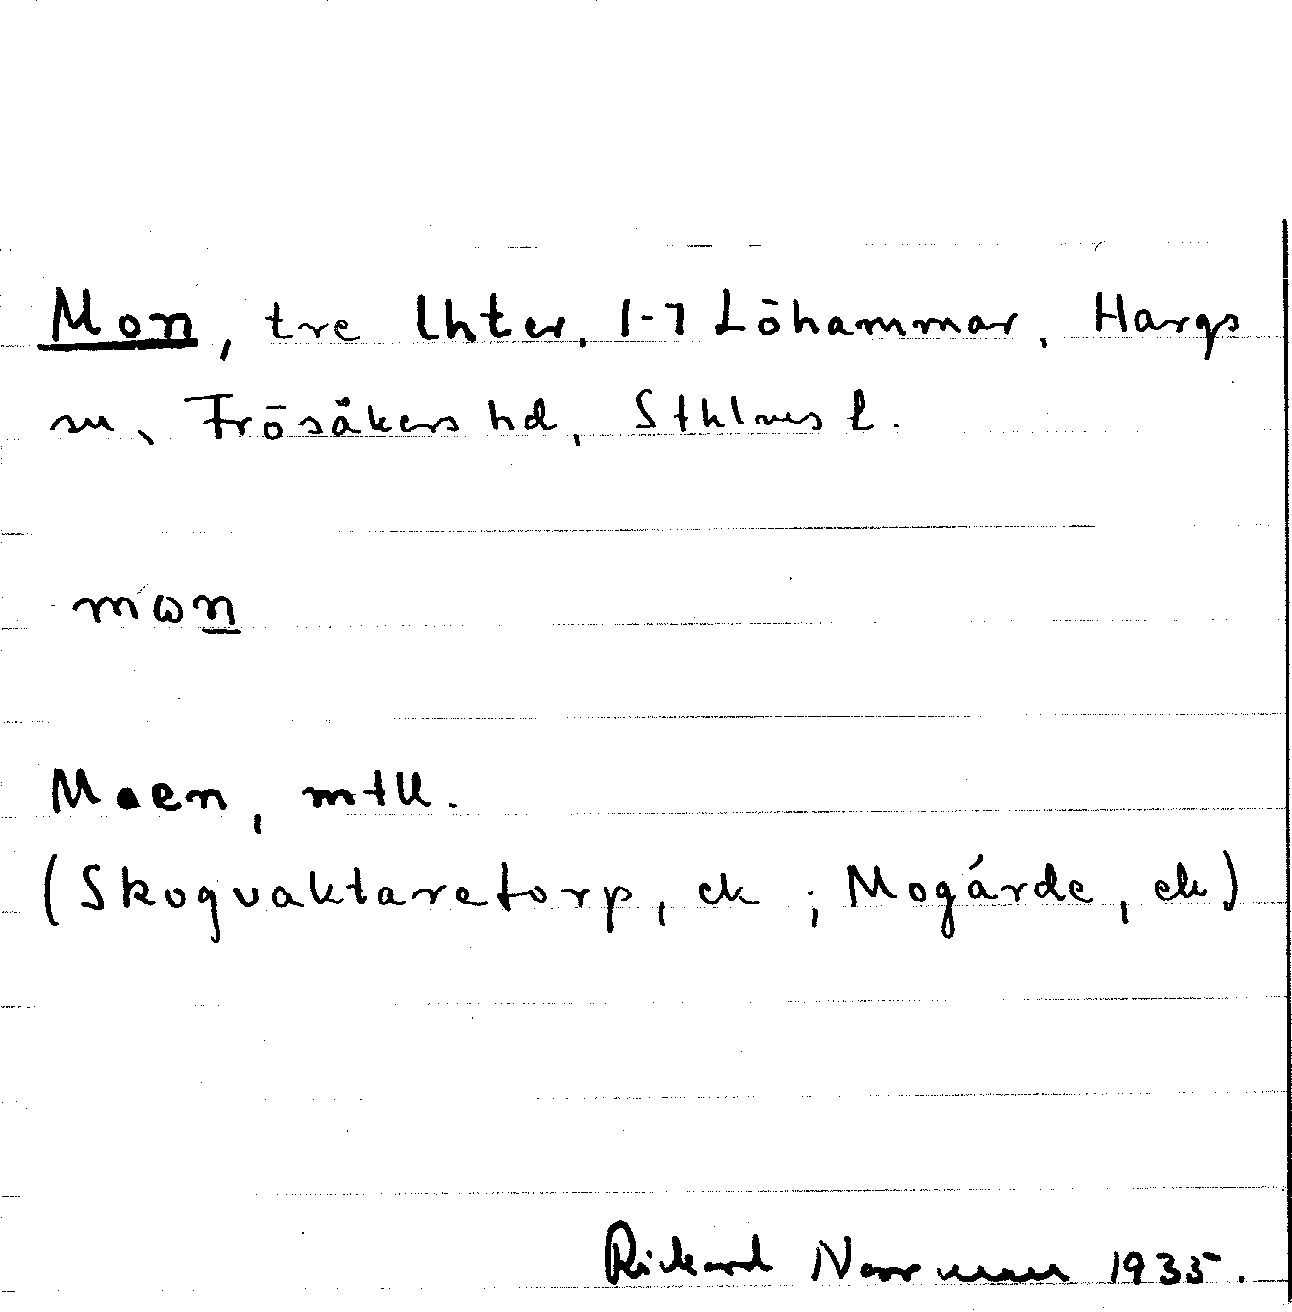 Mon, tre lhter, 1-7 Löhammar, Hargs
sn, Frösåkers hd, Sthlms l.
mωn
Moen, mtll.
(Skogvaktaretorp, ek ; Mogärde, ek)
Rickard Norrman 1935.